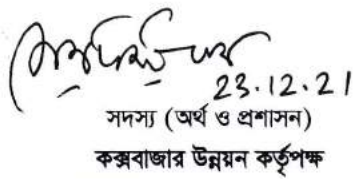 23.12.21
সদস্য (অর্থ ও প্রশাসন)
কক্সবাজার উন্নয়ন কর্তৃপক্ষ